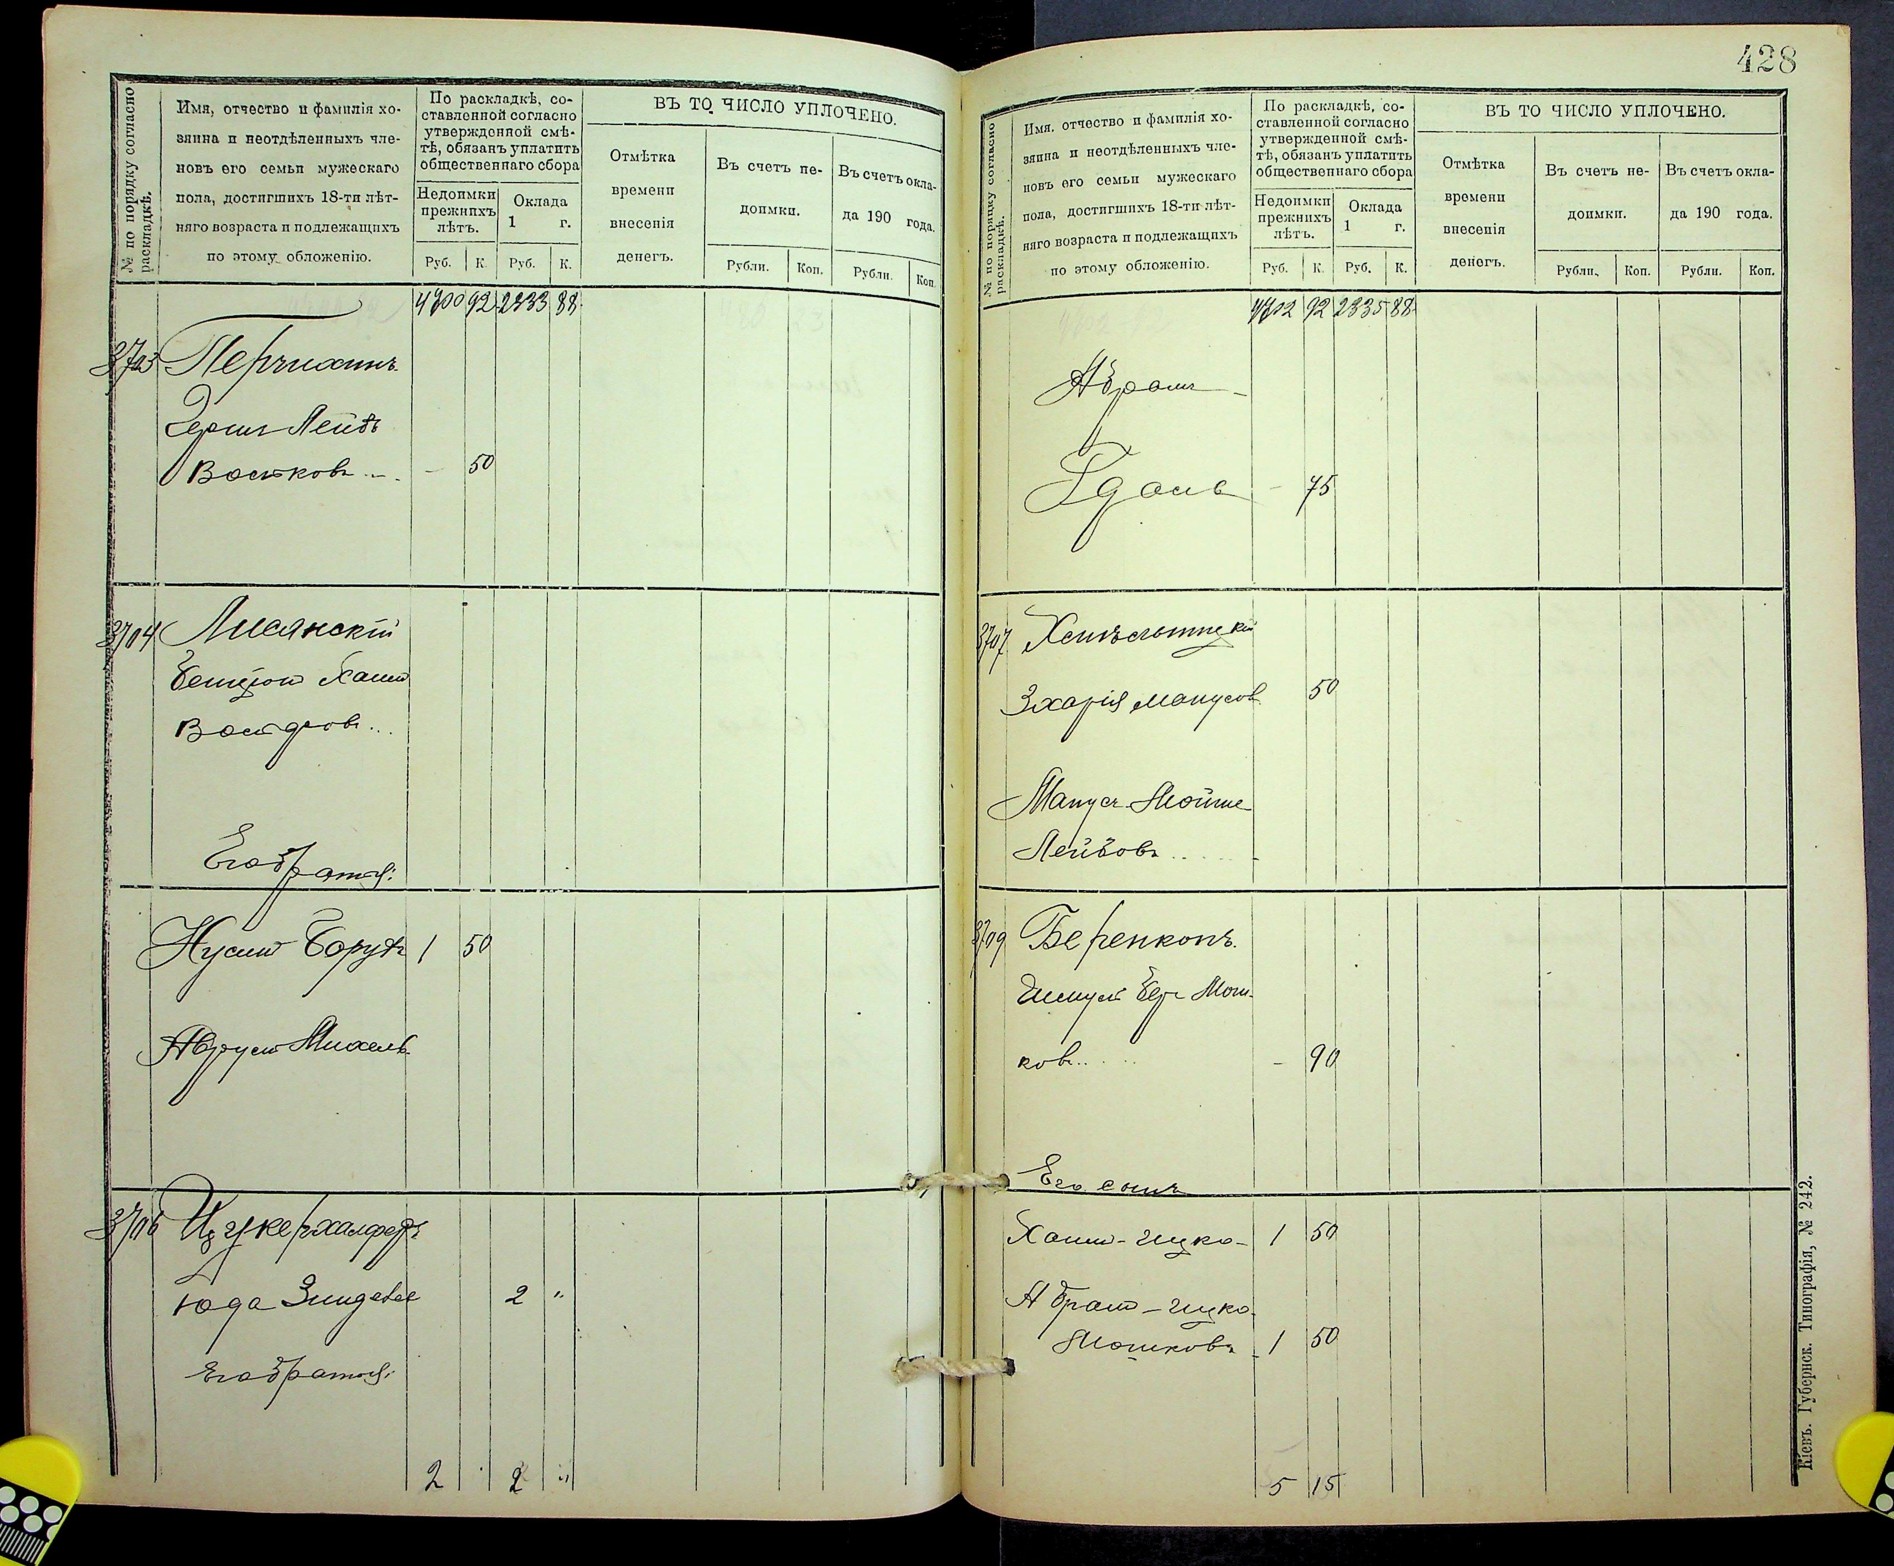 № по порядку согласно раскладкѣ.
Имя, отчество и фамилія хо-
зяина и неотдѣленныхъ чле-
новъ его семьи мужескаго
пола, достигшихъ 18-ти лѣт-
няго возраста и подлежащихъ
по этому обложенію.
По раскладкѣ, со-
ставленной согласно
утвержденной смѣ-
тѣ, обязанъ уплатить
общественнаго сбора
Недоимки
прежнихъ
лѣтъ.
Оклада
1 г.
Руб. К. Руб. К.
ВЪ ТО ЧИСЛО УПЛОЧЕНО.
Отмѣтка
времени
внесенія
денегъ.
Въ счетъ не-
доимки.
Въ счетъ окла-
да 190 года.
Рубли. Коп. Рубли. Коп.
4700 92 2333 88
3703
Герш Лейбъ
Востковъ - 50
3704 Лисянскій
Бенціон Хаим
Его братья:
Нусин Борух 1 50
Михель
3706 Цукерхалфер
Юда Зинделев 2 "
Его братья:
2 2 "
428
№ по порядку согласно раскладкѣ.
Имя, отчество и фамилія хо-
зяина и неотдѣленныхъ чле-
новъ его семьи мужескаго
пола, достигшихъ 18-ти лѣт-
няго возраста и подлежащихъ
по этому обложенію.
По раскладкѣ, со-
ставленной согласно
утвержденной смѣ-
тѣ, обязанъ уплатить
общественнаго сбора
Недоимки
прежнихъ
лѣтъ.
Оклада
1 г.
Руб. К. Руб. К.
ВЪ ТО ЧИСЛО УПЛОЧЕНО.
Отмѣтка
времени
внесенія
денегъ.
Въ счетъ не-
доимки.
Въ счетъ окла-
да 190 года.
Рубли. Коп. Рубли. Коп.
4702 92 2335 88
Абрам
Гдаль - 75
3707
Зхарія Манусов 50
Манус Мойше
Лейбовъ
3709 Беренкопъ.
Шмул Бер Мош-
ков - 90
Его сынъ
Хаим-Ицко 1 50
Абрам-Ицко
Мошковъ 1 50
5 15
Кіевъ. Губернск. Типографія, № 242.